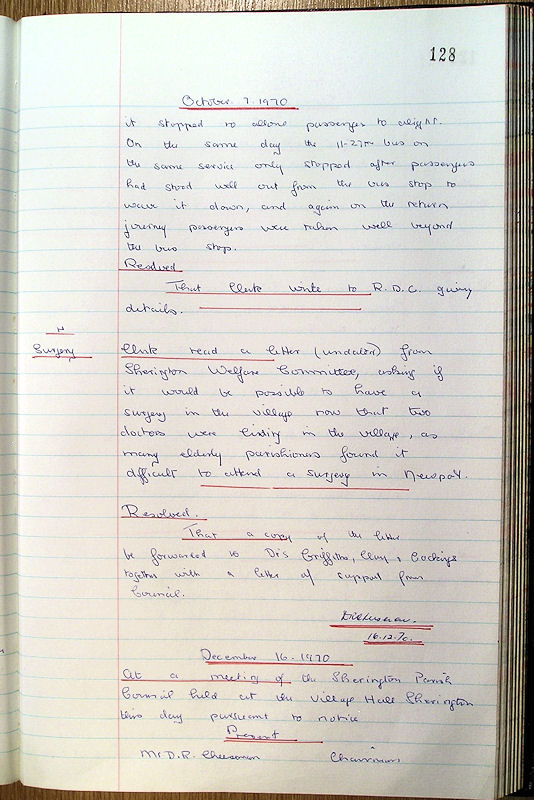 128
October 7. 1970
it stopped to allow passenger to alight.
On the same day the 11-27am bus on
the same service only stopped after passengers
had stood well out from the bus stop to
wave it down, and again on the return
journey passengers were taken well beyond
the bus stop.
Resolved
That Clerk write to R.D.C. giving
details.
Surgery
Clerk read a letter (undated) from
Sherington Welfare Committee, asking if
it would be possible to have a
surgery in the village now that two
doctors were living in the village, as
many elderly parishioners found it
difficult to attend a surgery in Newport.
Resolved.
That a copy of the letter
be forwarded to Drs Griffiths, &
together with a letter of support from
Council.
16.12.70.
December 16. 1970
At a meeting of the Sherington Parish
Council held at the Village Hall Sherington
this day pursuant to notice
Present
Mr D.R. Cheesman Chairman